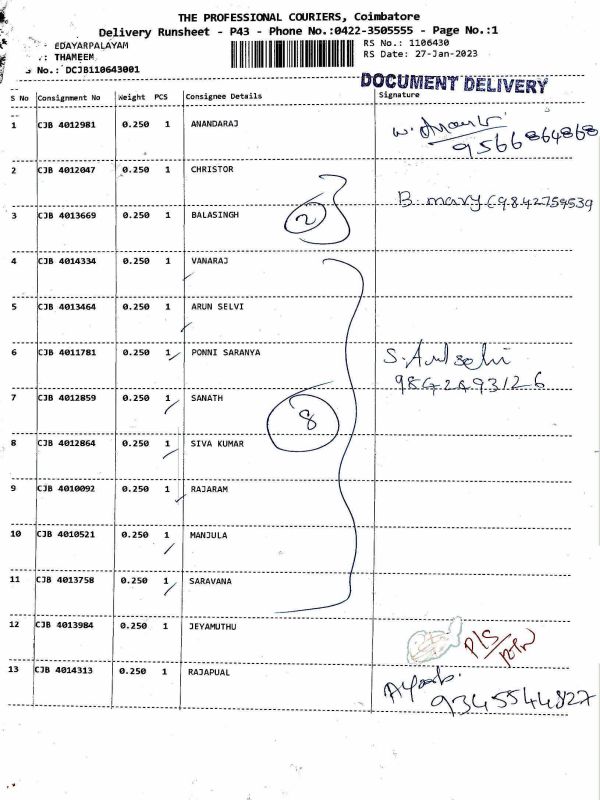 THE PROFESSIONAL COURIERS, Coimbatore
Delivery Runsheet - P43 - Phone No.:0422-3505555 - Page No.:1
EDAYARPALAYAM
: THAMEEM
No.: DCJB110643001
RS No.: 1106430
RS Date: 27-Jan-2023
DOCUMENT DELIVERY
S No Consignment No Weight PCS Consignee Details Signature
1 CJB 4012981 0.250 1 ANANDARAJ
9566864868
2 CJB 4012047 0.250 1 CHRISTOR
B. mary (9842759539
2
3 CJB 4013669 0.250 1 BALASINGH
4 CJB 4014334 0.250 1 VANARAJ
5 CJB 4013464 0.250 1 ARUN SELVI
6 CJB 4011781 0.250 1 PONNI SARANYA
9842693126
7 CJB 4012859 0.250 1 SANATH
8
8 CJB 4012864 0.250 1 SIVA KUMAR
9 CJB 4010092 0.250 1 RAJARAM
10 CJB 4010521 0.250 1 MANJULA
11 CJB 4013758 0.250 1 SARAVANA
12 CJB 4013984 0.250 1 JEYAMUTHU
P/S
13 CJB 4014313 0.250 1 RAJAPUAL
9345544827